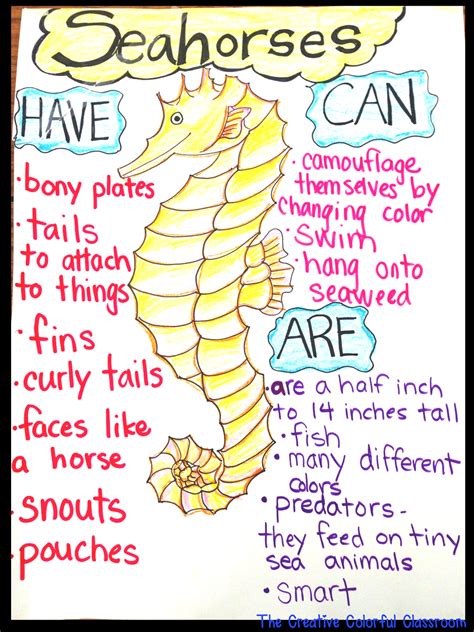 Seahorses
HAVE
· bony plates
· tails
to attach
to things
· fins
· curly tails
· faces like
a horse
· snouts
· pouches
CAN
· camouflage
themselves by
changing color
· Swim
· hang onto
seaweed
ARE
· are a half inch
to 14 inches tall
· fish
· many different
colors
· predators-
they feed on tiny
sea animals
· smart
The Creative Colorful Classroom